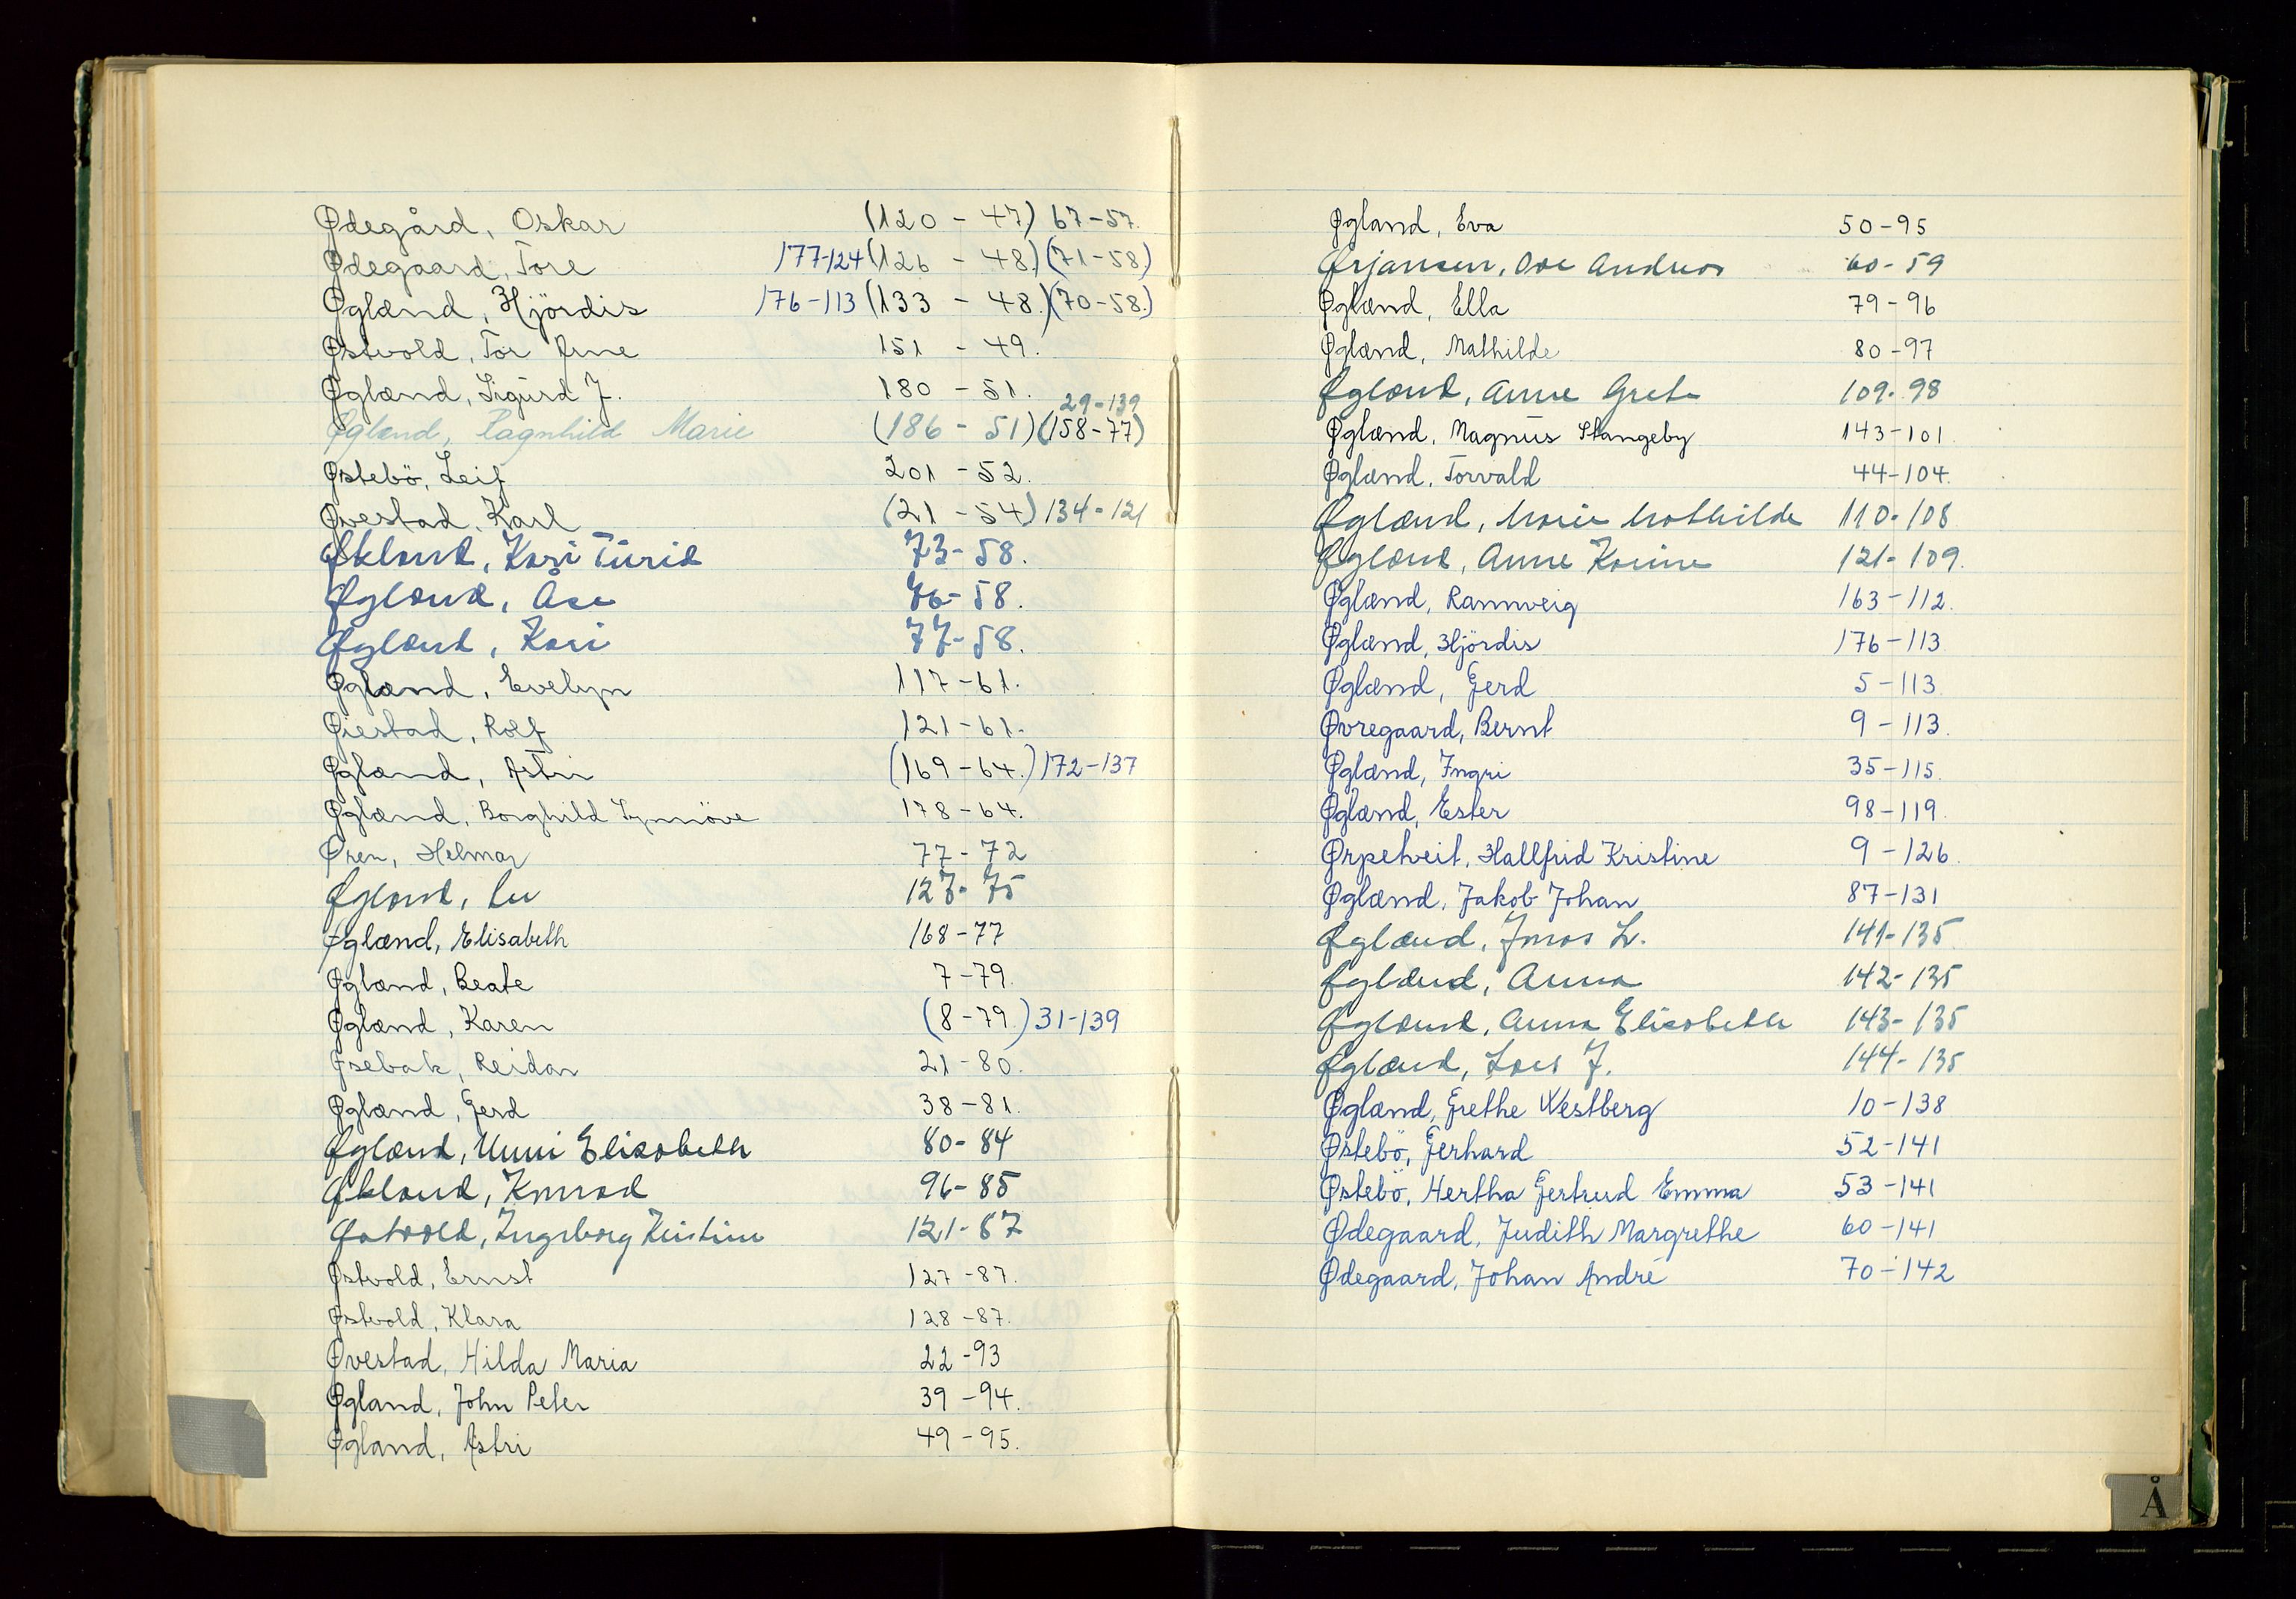 Ødegård, Oskar (120 - 47) 67-57.
Ødegaard, Tore 177-124 (126 - 48.) (71-58.)
Øglænd, Hjördis 176-113 (133 - 48.) (70-58.)
Østvold, Tor Arne 151 - 49.
Øglænd, Sigurd J. 180 - 51.
29-139
Øglænd, Ragnhild Marie (186 - 51) (158-77)
Østebö, Leif 201 - 52.
Øvestad, Karl (21 - 54) 134-121
Økland, Kari Turid 73-58.
Øglænd, Åse 76-58.
Øglænd, Kari 77-58.
Øglænd, Evelyn 117-61.
Øiestad, Rolf 121-61.
Øglænd, Astri (169-64.) 172-137
Øglænd, Borghild Synnöve 178-64.
Øren, Helmar 77-72
Øglænd, 127-75
Øglænd, Elisabeth 168-77
Øglænd, Beate 7-79.
Øglænd, Karen (8-79.) 31-139
Øsebak, Reidar 21-80.
Øglænd, Gerd 38-81.
Øglænd, Unni Elisabeth 80-84
Økland, Konrad 96-85
Østvold, Ingeborg Kristine 121-87
Østvold, Ernst 127-87.
Østvold, Klara 128-87.
Øvestad, Hilda Maria 22-93
Øgland, John Peter 39-94.
Øgland, Astri 49-95.
Øgland, Eva 50-95
Ørjansen, Ove Andreas 60-59
Øglænd, Ella 79-96
Øglænd, Mathilde 80-97
Øglænd, Anne Grete 109-98
Øglænd, Magnus Stangeby 143-101.
Øglænd, Torvald 44-104.
Øglænd, Marie Mathilde 110-108
Øglænd, Anne Karine 121-109.
Øglænd, Rannveig 163-112.
Øglænd, Hjördis 176-113
Øglænd, Gerd 5-113
Øvregaard, Bernt 9-113.
Øglænd, Ingri 35-115.
Øglænd, Ester 98-119.
Ørpetveit, Hallfrid Kristine 9-126.
Øglænd, Jakob Johan 87-131
Øglænd, Jonas L. 141-135
Øglænd, Anna 142-135
Øglænd, Anna Elisabeth 143-135
Øglænd, Lars J. 144-135
Øglænd, Grethe Westberg 10-138
Østebö, Gerhard 52-141
Østebö, Hertha Gertrud Emma 53-141
Ødegaard, Judith Margrethe 60-141
Ødegaard, Johan André 70-142
Å